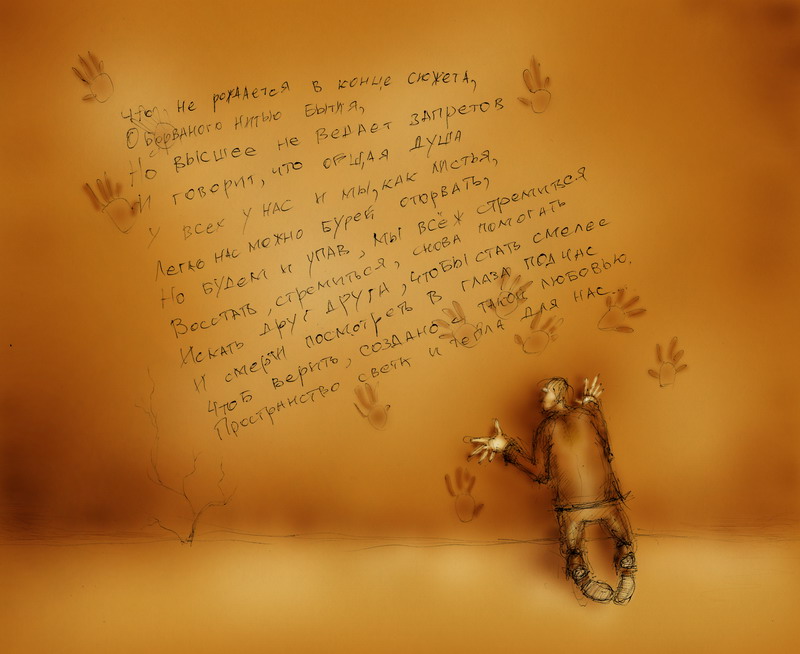 Что, не рождается в конце сюжета,
Оборваного нитью бытия,
Но высшее не ведает запретов
И говорит, что общая душа
У всех у нас и мы, как листья,
Легко нас можно бурей оторвать,
Но будем и упав, мы всёж стремиться
Восстать, стремиться, снова помогать
Искать друг друга, чтобы стать смелее
И смерти посмотреть в глаза подчас
Чтоб верить, создано с такой любовью,
Пространство света и тепла для нас...